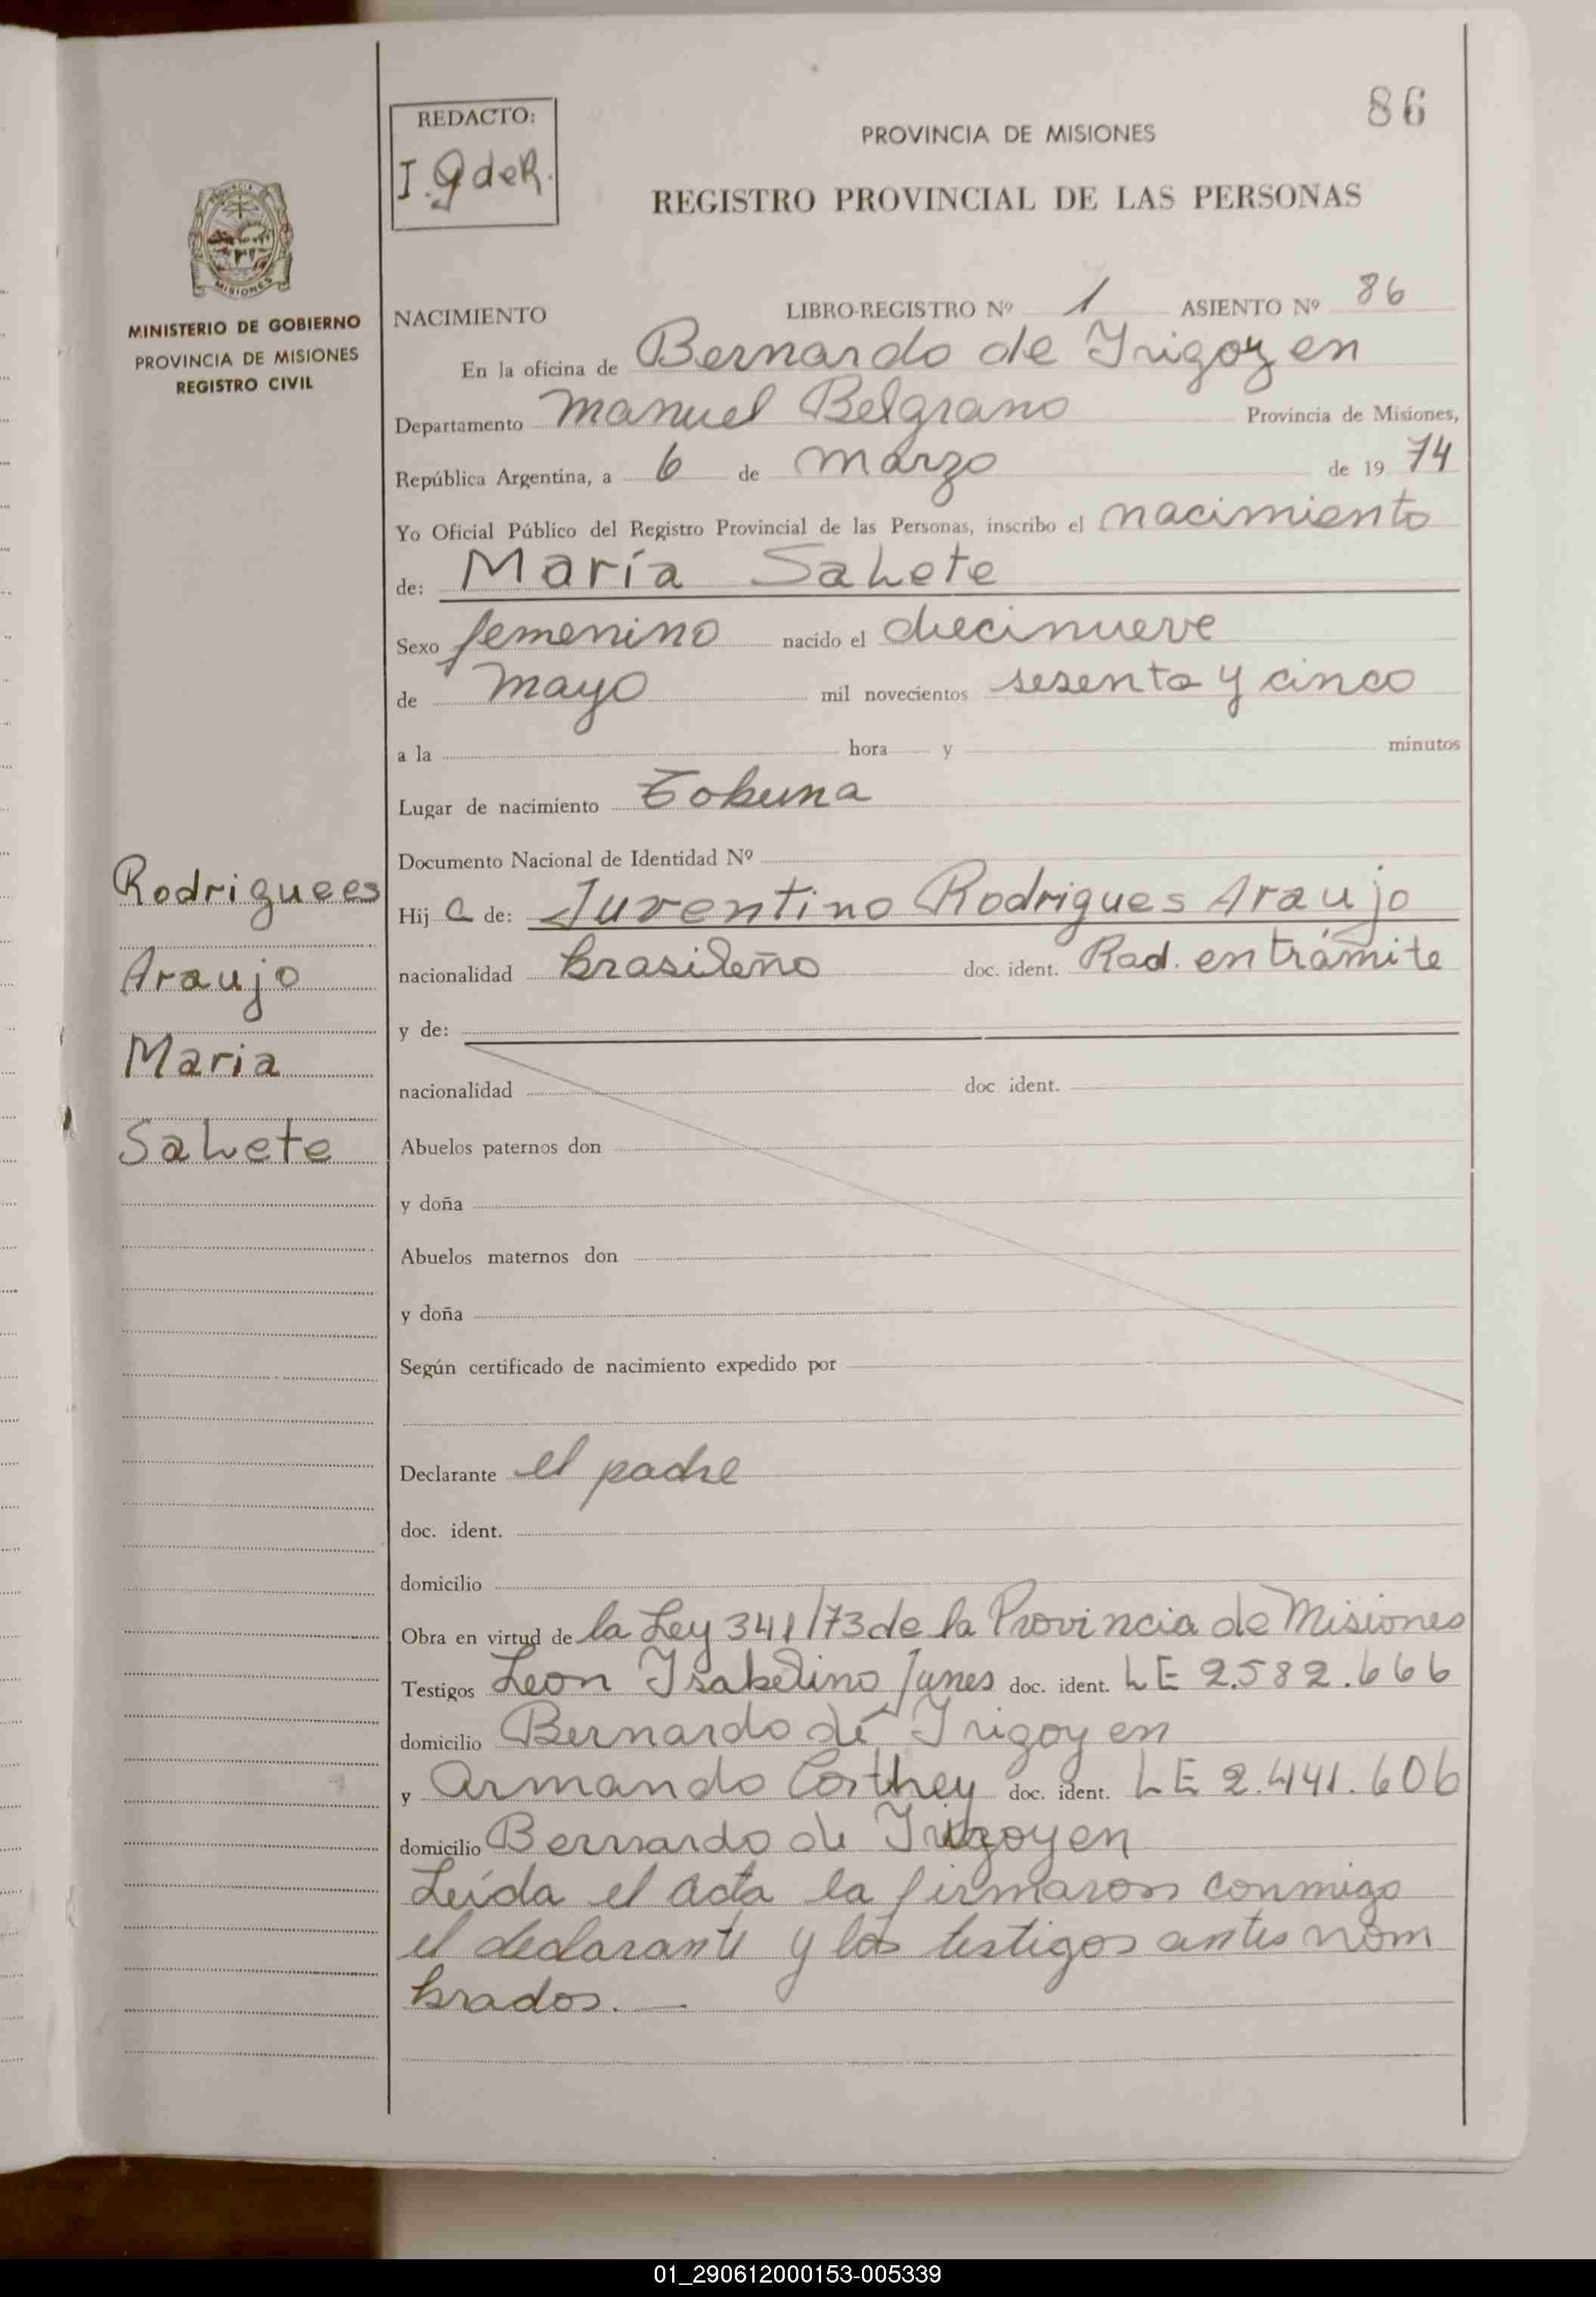 86
REDACTO:
I. G de R.
PROVINCIA DE MISIONES
REGISTRO PROVINCIAL DE LAS PERSONAS
MISIONES
MINISTERIO DE GOBIERNO
PROVINCIA DE MISIONES
REGISTRO CIVIL
NACIMIENTO LIBRO-REGISTRO Nº 1 ASIENTO Nº 86
En la oficina de Bernardo de Irigoyen
Departamento Manuel Belgrano Provincia de Misiones,
República Argentina, a 6 de marzo de 19 74
Yo Oficial Público del Registro Provincial de las Personas, inscribo el nacimiento
de: María Salete
Sexo femenino nacido el diecinueve
de mayo mil novecientos sesenta y cinco
a la hora y minutos
Lugar de nacimiento Tobuna
Documento Nacional de Identidad Nº
Hij a de: Juventino Rodrigues Araujo
nacionalidad brasileño doc. ident. Rad. en trámite
y de:
nacionalidad doc ident.
Abuelos paternos don
y doña
Abuelos maternos don
y doña
Según certificado de nacimiento expedido por
Declarante el padre
doc. ident.
domicilio
Obra en virtud de la Ley 341/73 de la Provincia de Misiones
Testigos Leon Isabelino Junes doc. ident. LE 2.582.666
domicilio Bernardo de Irigoyen
y Armando Corthey doc. ident. LE 2.441.606
domicilio Bernardo de Irigoyen
Leída el acta la firmaron conmigo
el declarante y los testigos antes nom
brados.
Rodriguees
Araujo
Maria
Salete
01_290612000153-005339